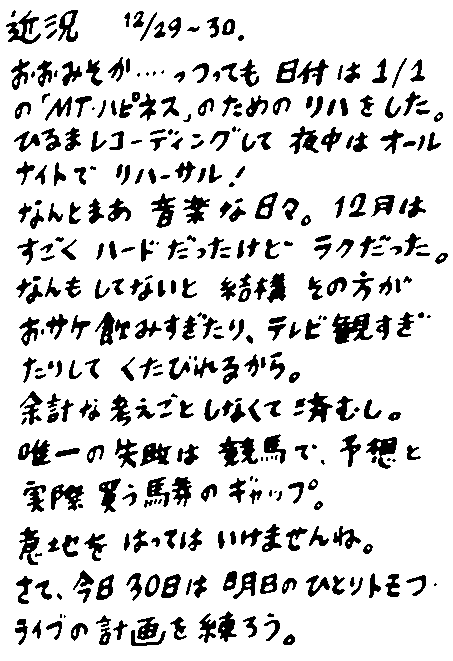 近況 12/29~30.
おおみそか‥‥っつっても 日付は 1/1
の「MT.ハピネス」のための リハをした。
ひるまレコーディングして 夜中は オール
ナイトで リハーサル!
なんとまあ 音楽な日々。12月は
すごく ハードだったけど ラクだった。
なんもしてないと 結構 その方が
おサケ飲みすぎたり、テレビ観すぎ
たりして くたびれるから。
余計な考えごとしなくて済むし。
唯一の失敗は 競馬で、予想と
実際 買う馬券のギャップ。
意地を はっては いけませんね。
さて、今日30日は 明日のひとりトモフ・
ライブの計画を練ろう。